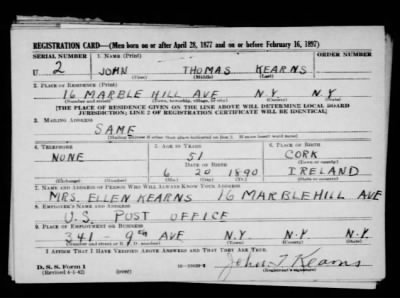 REGISTRATION CARD—(Men born on or after April 28, 1877 and on or before February 16, 1897)
SERIAL NUMBER 1. NAME (Print) ORDER NUMBER
U 2 JOHN THOMAS KEARNS
(First) (Middle) (Last)
2. PLACE OF RESIDENCE (Print)
16 MARBLE HILL AVE N.Y. N.Y.
(Number and street) (Town, township, village, or city) (County) (State)
[THE PLACE OF RESIDENCE GIVEN ON THE LINE ABOVE WILL DETERMINE LOCAL BOARD
JURISDICTION; LINE 2 OF REGISTRATION CERTIFICATE WILL BE IDENTICAL]
3. MAILING ADDRESS
SAME
[Mailing address if other than place indicated on line 2. If same insert word same]
4. TELEPHONE 5. AGE IN YEARS 6. PLACE OF BIRTH
NONE 51 CORK
DATE OF BIRTH (Town or county)
6 20 1890 IRELAND
(Exchange) (Number) (Mo.) (Day) (Yr.) (State or country)
7. NAME AND ADDRESS OF PERSON WHO WILL ALWAYS KNOW YOUR ADDRESS
MRS. ELLEN KEARNS 16 MARBLEHILL AVE
8. EMPLOYER'S NAME AND ADDRESS
U.S. POST OFFICE
9. PLACE OF EMPLOYMENT OR BUSINESS
341 - 9TH AVE N.Y. N.Y. N.Y.
(Number and street or R. F. D. number) (Town) (County) (State)
I AFFIRM THAT I HAVE VERIFIED ABOVE ANSWERS AND THAT THEY ARE TRUE.
D. S. S. Form 1
(Revised 4-1-42) (over) John T Kearns
(Registrant's signature)